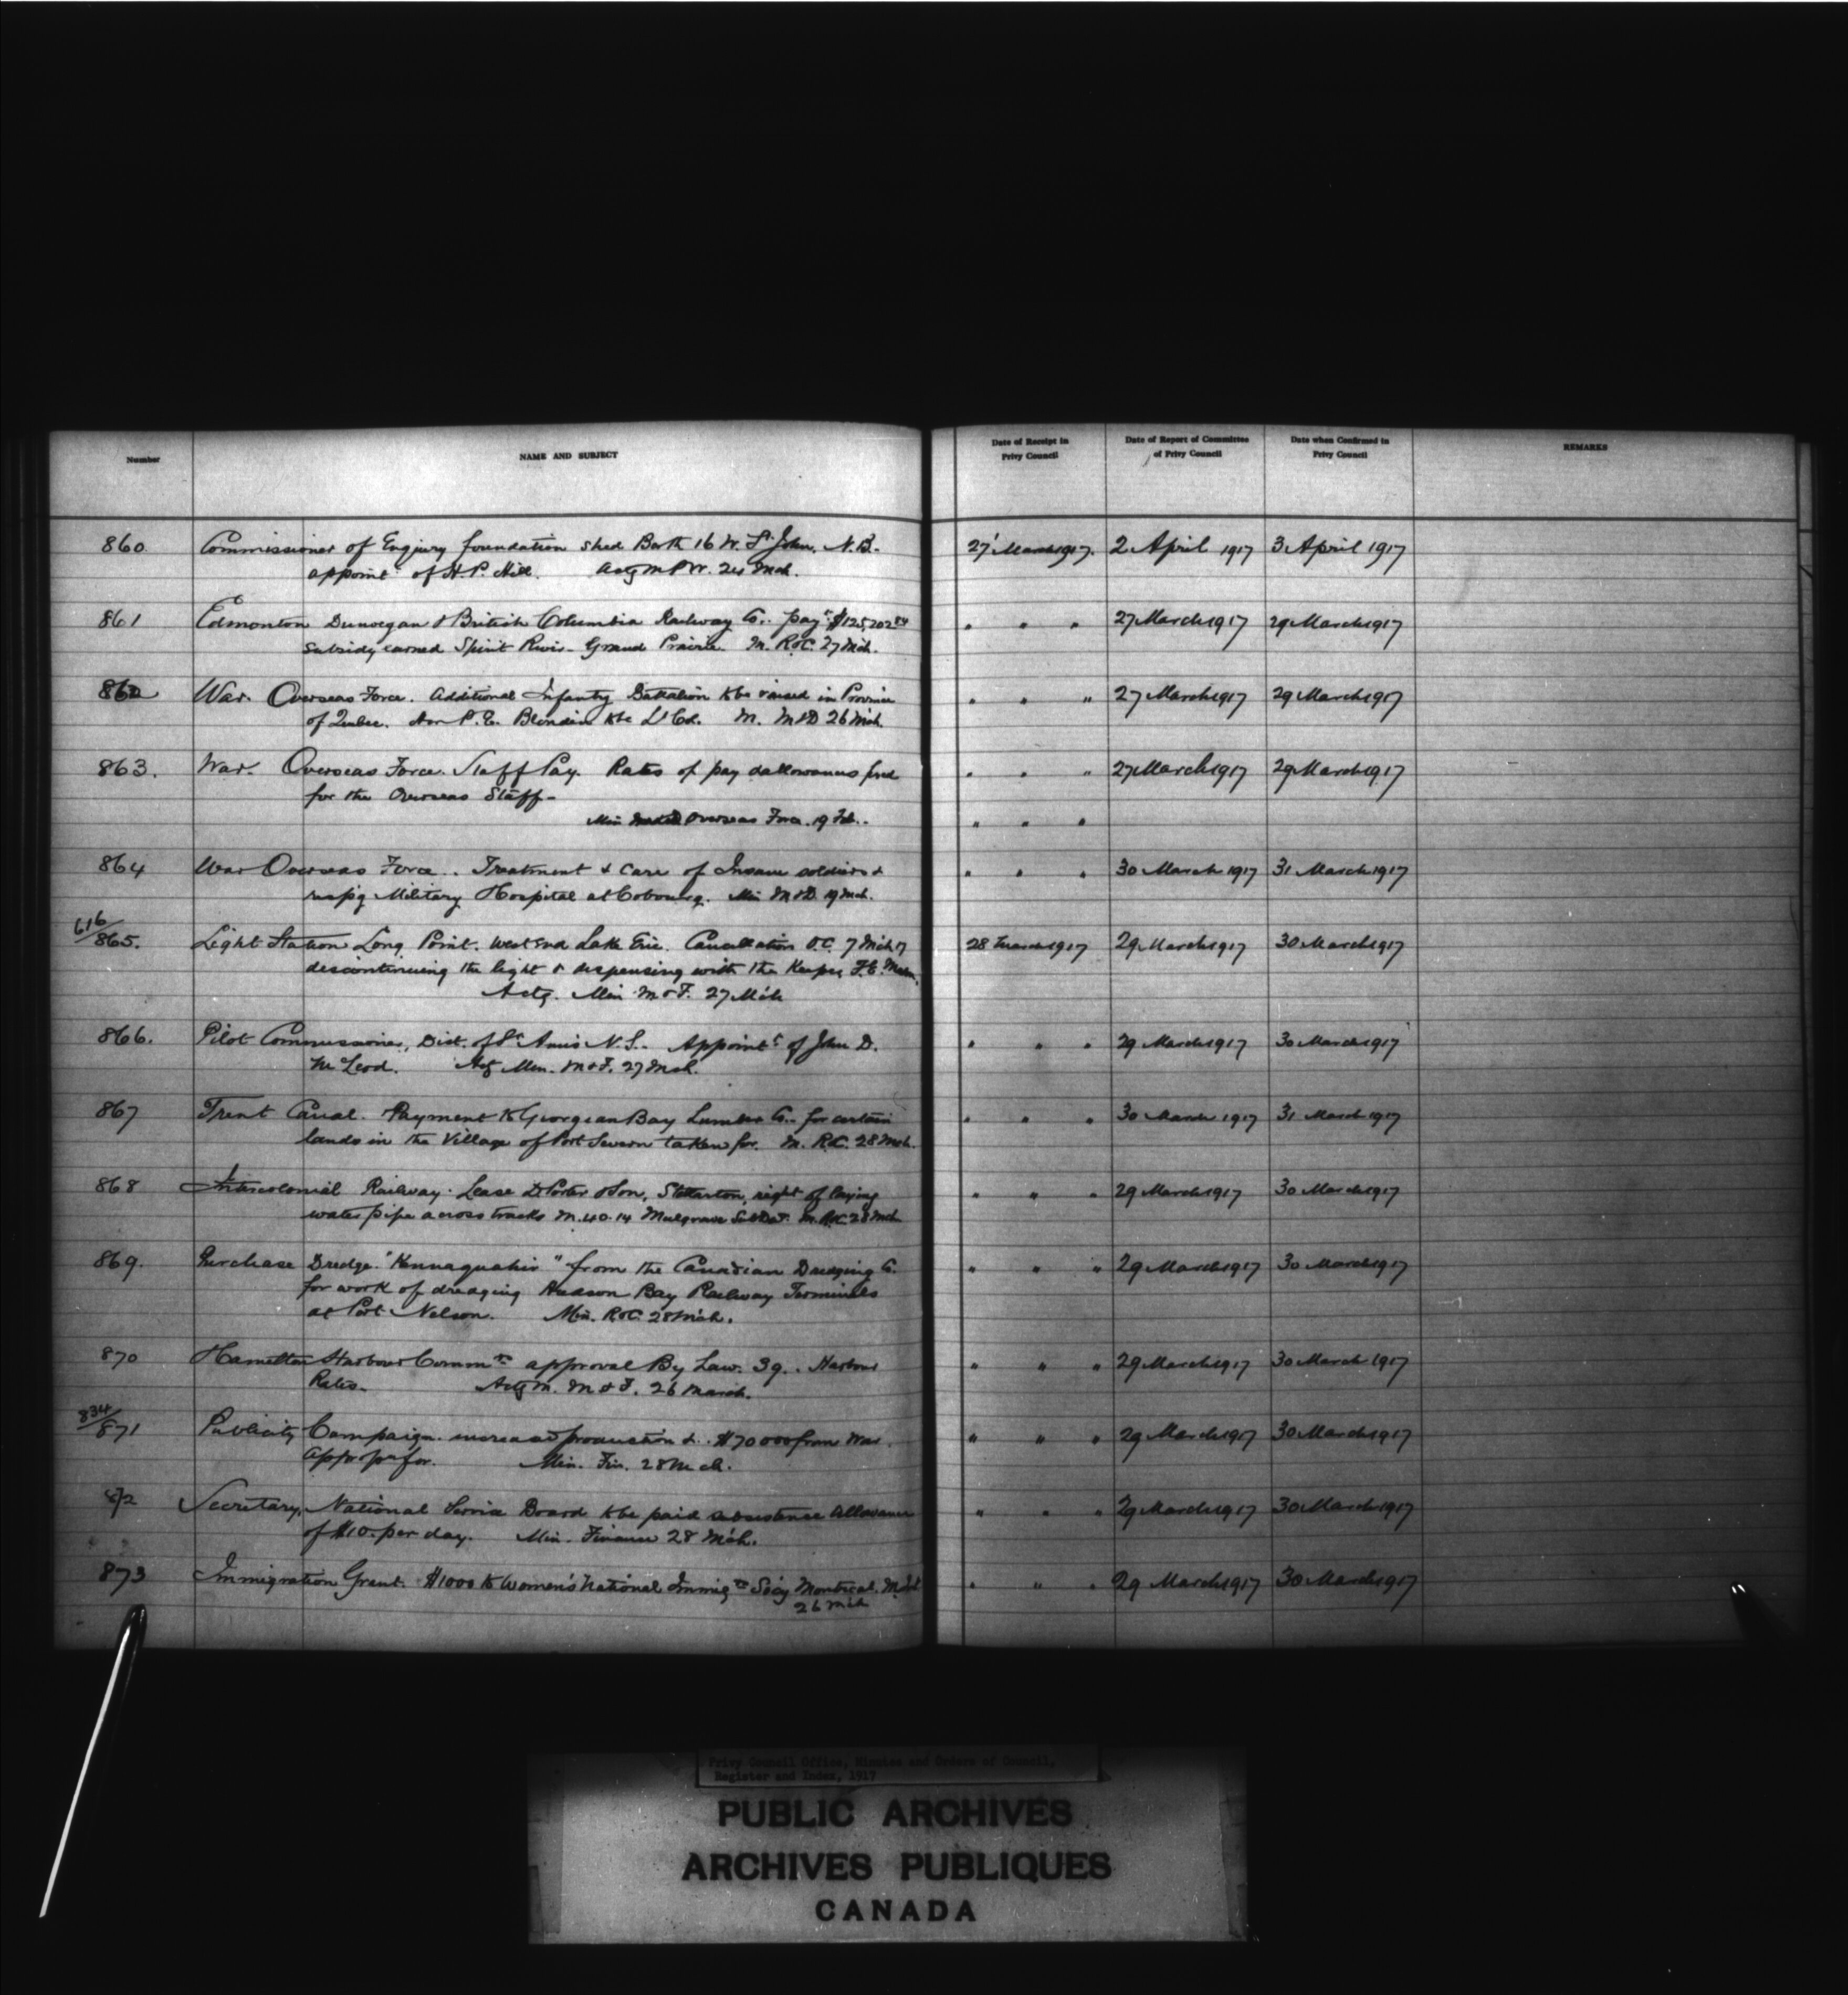 Number
NAME AND SUBJECT
Date of Receipt in Privy Council
Date of Report of Committee of Privy Council
Date when Confirmed in Privy Council
REMARKS
860 Commissioner of Enquiry foundation shed Berth 16 W. St John, N.B. 27 March 1917. 2 April 1917 3 April 1917
appointt of H.P. Hill. Actg M P W. 24 Mch.
861 Edmonton Dunvegan & British Columbia Railway Co. payt $125,202 84 " " " 27 March 1917 29 March 1917
subsidy earned Spirit River - Grand Prairie M. R&C. 27 Mch.
862 War. Overseas Force. Additional Infantry Battalion to be raised in Province " " " 27 March 1917 29 March 1917
of Quebec. Hon P.E. Blondin to be Lt Col. M. M&D 26 Mch.
863. War. Overseas Force. Staff Pay. Rates of pay & allowances fixed " " " 27 March 1917 29 March 1917
for the Overseas Staff-
Min Overseas Force. 19 Feb. " " "
864 War Overseas Force. Treatment & care of Insane soldiers & " " " 30 March 1917 31 March 1917
resp'g Military Hospital at Cobourg. Min M&D. 19 Mch.
616/865. Light Station Long Point. West End Lake Erie. Cancellation O.C. 7 Mch 17 28 March 1917 29 March 1917 30 March 1917
discontinuing the light & dispensing with the Keeper
Actg. Min M&F. 27 Mch
866. Pilot Commissioner, Dist. of St Ann's N.S. Appointt of John D. " " " 29 March 1917 30 March 1917
McLeod. Actg Min. M&F. 27 Mch.
867 Trent Canal. Payment to Georgean Bay Lumber Co. for certain " " " 30 March 1917 31 March 1917
lands in the Village of Port Severn taken for. M. R.C. 28 Mch.
868 Intercolonial Railway. Lease D Porter & Son, Stellarton, right of laying " " " 29 March 1917 30 March 1917
water pipe across tracks M. 40.14 Mulgrave M. R&C 28 Mch
869. Purchase Dredge "Kennaquahir" from the Canadian Dredging Co. " " " 29 March 1917 30 March 1917
for work of dredging Hudson Bay Railway Terminals
at Port Nelson. Min. R&C. 28 Mch.
870 Hamilton Harbour Commrs approval By Law. 39. Harbour " " " 29 March 1917 30 March 1917
Rates. Actg M. M & F. 26 March.
834/871 Publicity Campaign. increased production &. $70 000 from War " " " 29 March 1917 30 March 1917
Appropn for. Min. Fin. 28 Mch.
872 Secretary, National Service Board to be paid subsistence Allowance " " " 29 March 1917 30 March 1917
of $10. per day. Min. Finance 28 Mch.
873 Immigration Grant. $1000 to Women's National Immign Soc'y Montreal. " " " 29 March 1917 30 March 1917
26 Mch
Privy Council Office, Minutes and Orders of Council,
Register and Index, 1917
PUBLIC ARCHIVES
ARCHIVES PUBLIQUES
CANADA